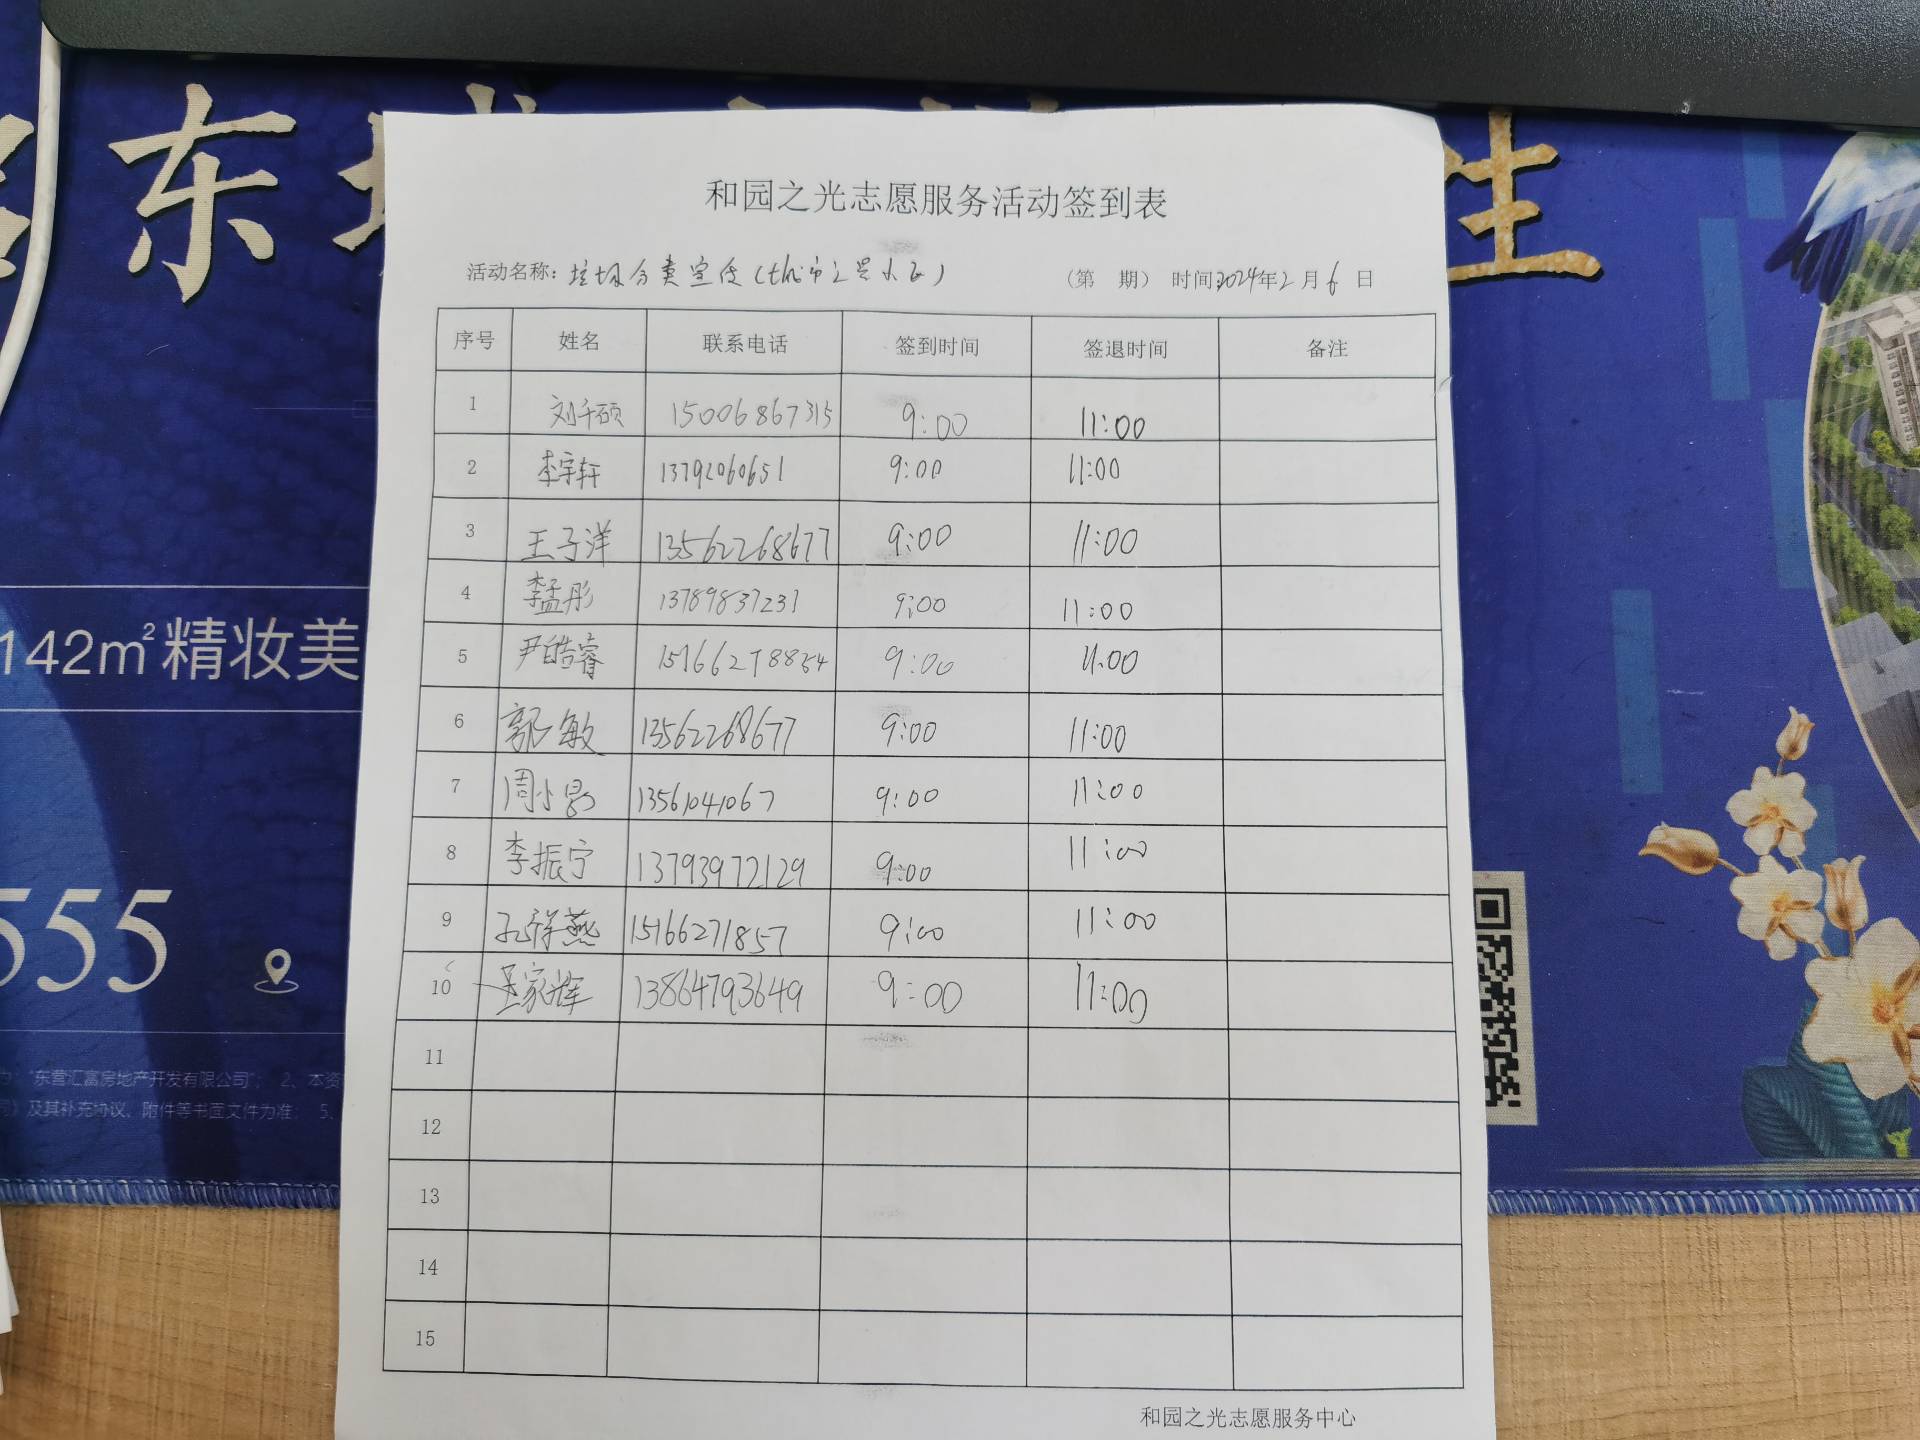 东
生
和园之光志愿服务活动签到表
活动名称：垃圾分类宣传 （第 期） 时间：2024年2月6日
序号 姓名 联系电话 签到时间 签退时间 备注
1 刘千硕 15006867315 9:00 11:00
2 李宇轩 13792060651 9:00 11:00
3 王子洋 13562268677 9:00 11:00
4 李孟彤 13789837231 9:00 11:00
5 尹皓睿 9:00 11:00
6 郭敏 13562268677 9:00 11:00
7 周小 13561041067 9:00 11:00
8 李振宁 13793972129 9:00 11:00
9 孔祥燕 15166271857 9:00 11:00
10 王家辉 13864793649 9:00 11:00
11
12
13
14
15
和园之光志愿服务中心
142m²精妆美
555
"东营汇富房地产开发有限公司"； 2、本资
及其补充协议、附件等书面文件为准； 5、